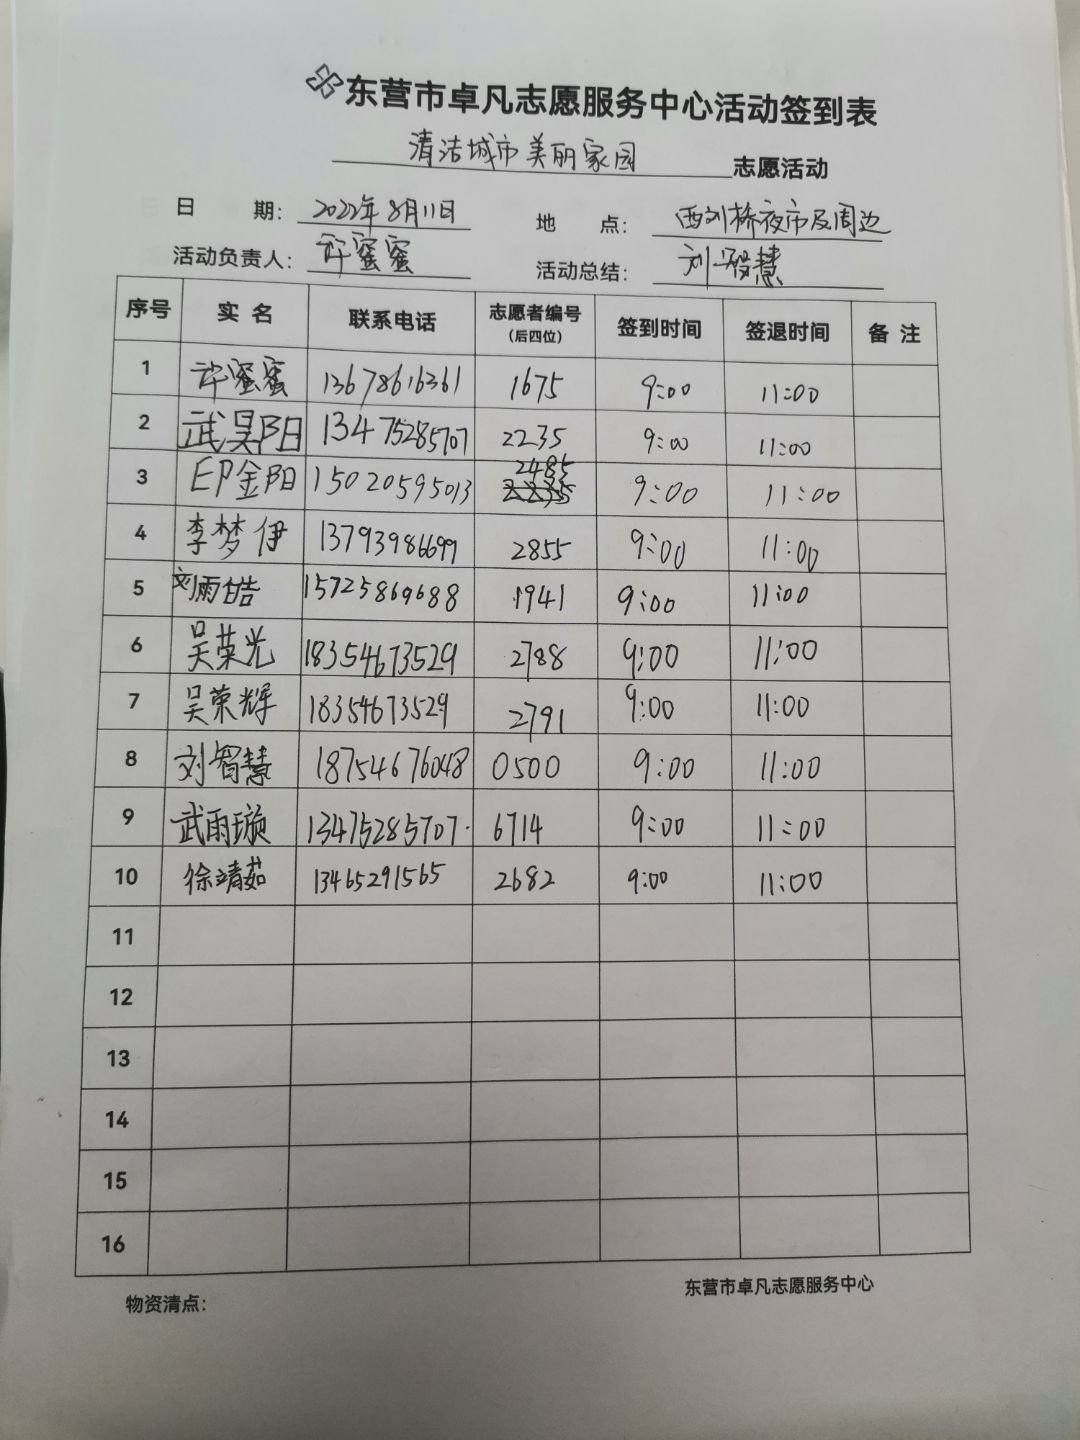 东营市卓凡志愿服务中心活动签到表
清洁城市美丽家园 志愿活动
日 期: 2022年8月11日 地 点: 西刘桥夜市及周边
活动负责人: 许蜜蜜 活动总结: 刘智慧
序号 实名 联系电话 志愿者编号(后四位) 签到时间 签退时间 备注
1 许蜜蜜 13678616361 1675 9:00 11:00
2 武昊阳 13475285707 2235 9:00 11:00
3 印金阳 15020595013 2485 9:00 11:00
4 李梦伊 13793986699 2855 9:00 11:00
5 刘雨皓 15725869688 1941 9:00 11:00
6 吴荣光 18354673529 2788 9:00 11:00
7 吴荣辉 18354673529 2791 9:00 11:00
8 刘智慧 18754676048 0500 9:00 11:00
9 武雨璇 13475285707 6714 9:00 11:00
10 徐靖茹 13465291565 2682 9:00 11:00
11
12
13
14
15
16
物资清点:
东营市卓凡志愿服务中心